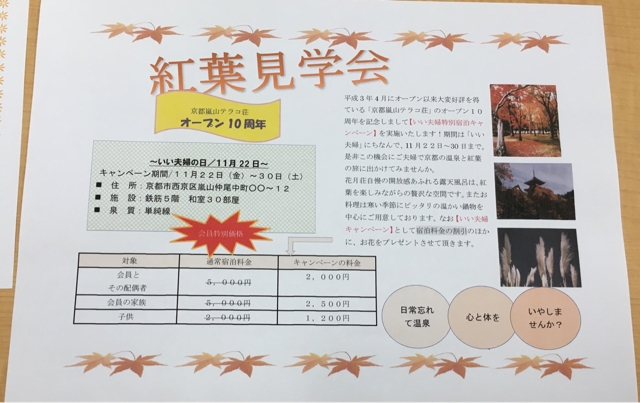 紅葉見学会
京都嵐山テラコ荘
オープン10周年
～いい夫婦の日／11月22日～
キャンペーン期間／11月22日（金）～30日（土）
■ 住 所：京都市西京区嵐山仲尾中町〇〇－12
■ 施 設：鉄筋5階 和室30部屋
■ 泉 質：単純線
会員特別価格
対象 通常宿泊料金 キャンペーンの料金
会員と
その配偶者 5，000円 2，000円
会員の家族 5，000円 2，500円
子供 2，000円 1，200円
平成3年4月にオープン以来大変好評を得
ている「京都嵐山テラコ荘」のオープン10
周年を記念しまして【いい夫婦特別宿泊キャ
ンペーン】を実施いたします！期間は「いい
夫婦」にちなんで、11月22日～30日まで。
是非この機会にご夫婦で京都の温泉と紅葉
の旅に出かけてみませんか。
花月荘自慢の開放感あふれる露天風呂は、紅
葉を楽しみながらの贅沢な空間です。またお
料理は寒い季節にピッタリの温かい鍋物を
中心にご用意しております。なお【いい夫婦
キャンペーン】として宿泊料金の割引のほか
に、お花をプレゼントさせて頂きます。
日常忘れ
て温泉
心と体を
いやしま
せんか？